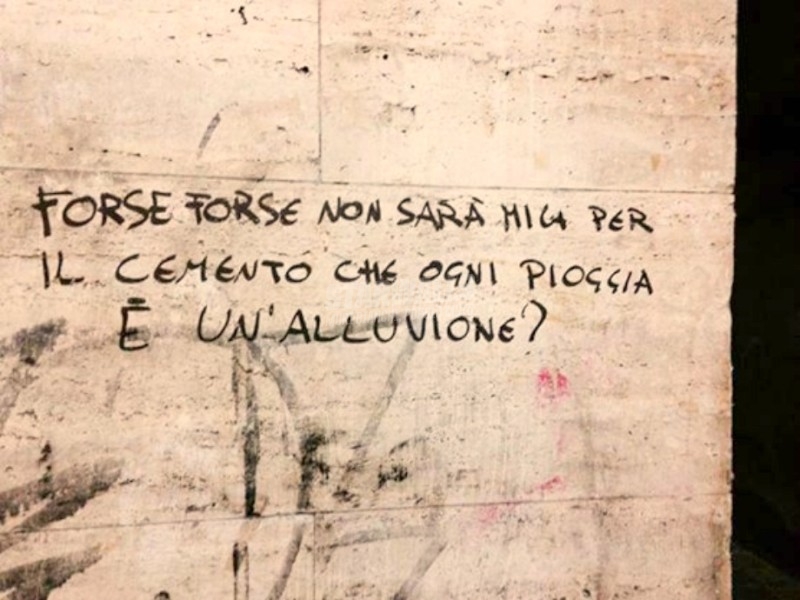 FORSE FORSE NON SARÀ MICA PER
IL CEMENTO CHE OGNI PIOGGIA
È UN'ALLUVIONE?